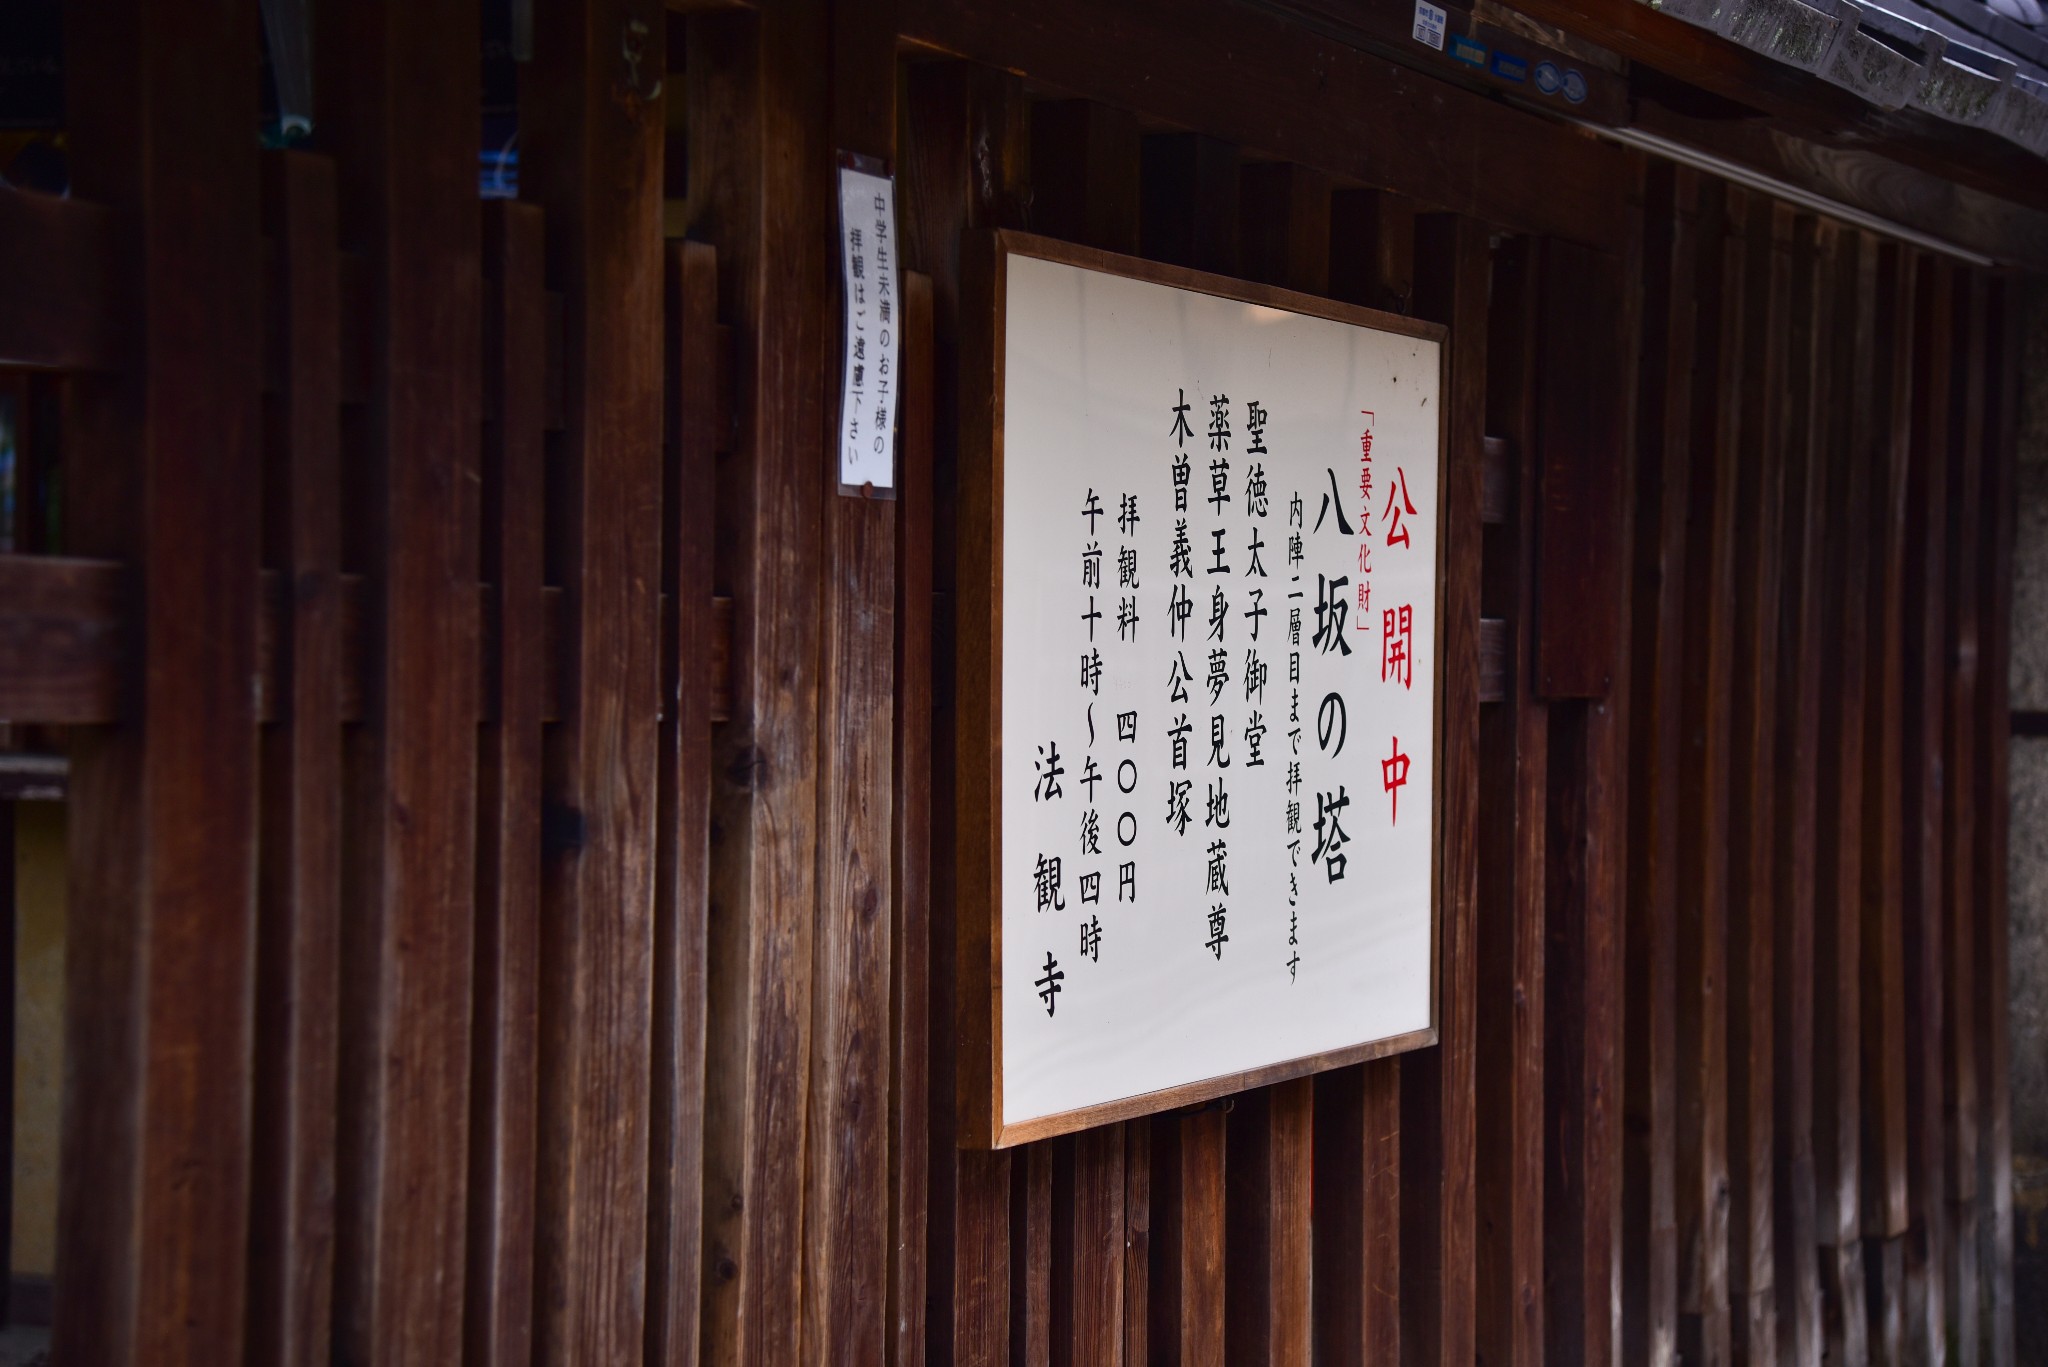 公開中
「重要文化財」
八坂の塔
内陣二層目まで拝観できます
聖徳太子御堂
薬草王身夢見地蔵尊
木曽義仲公首塚
拝観料 四〇〇円
午前十時〜午後四時
法観寺
中学生未満のお子様の
拝観はご遠慮下さい